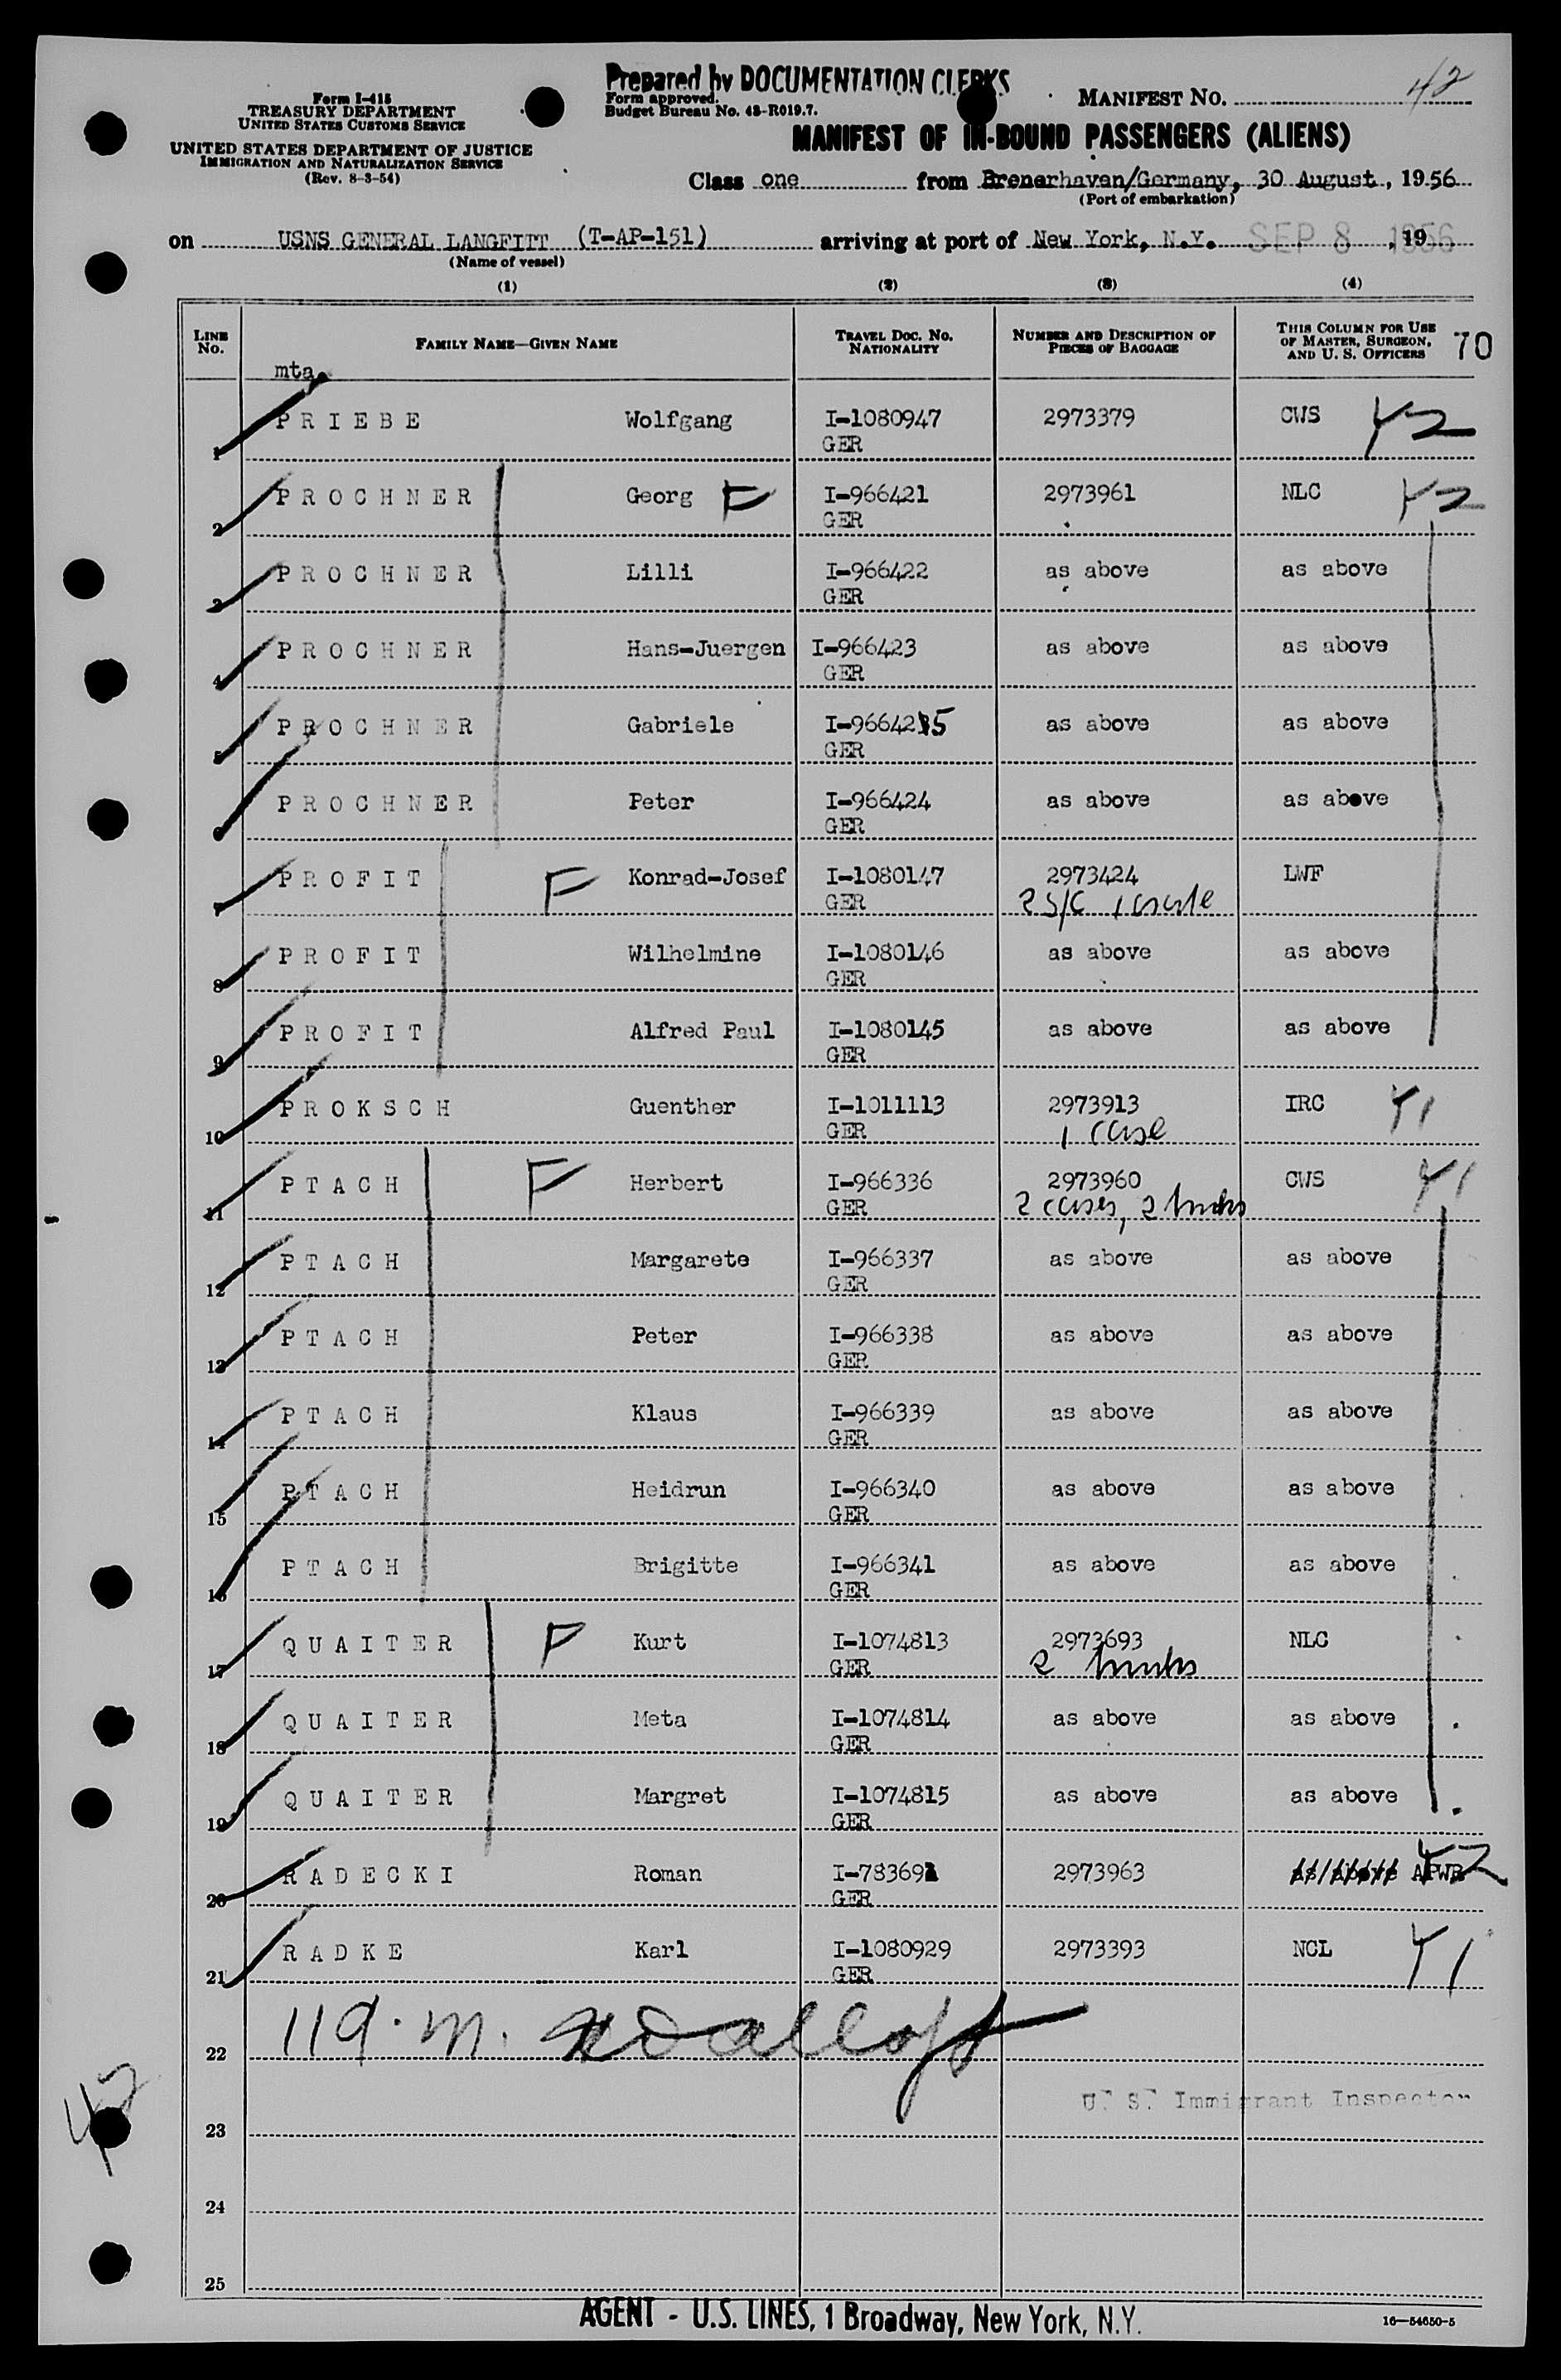 Prepared by DOCUMENTATION CLERKS
Form I-415
TREASURY DEPARTMENT
UNITED STATES CUSTOMS SERVICE
UNITED STATES DEPARTMENT OF JUSTICE
IMMIGRATION AND NATURALIZATION SERVICE
(Rev. 8-3-54)
Form approved.
Budget Bureau No. 43-R019.7.
MANIFEST NO. 42
MANIFEST OF IN-BOUND PASSENGERS (ALIENS)
Class one from Bremerhaven/Germany, 30 August, 1956
(Port of embarkation)
on USNS GENERAL LANGFITT (T-AP-151) arriving at port of New York, N.Y. SEP 8 1956, 19
(Name of vessel)
(1) (2) (3) (4)
LINE NO. FAMILY NAME—GIVEN NAME TRAVEL DOC. NO. NATIONALITY NUMBER AND DESCRIPTION OF PIECES OF BAGGAGE THIS COLUMN FOR USE OF MASTER, SURGEON, AND U. S. OFFICERS 70
mta
1 PRIEBE Wolfgang I-1080947 2973379 CWS 42
GER
2 PROCHNER Georg F I-966421 2973961 NLC 42
GER
3 PROCHNER Lilli I-966422 as above as above
GER
4 PROCHNER Hans-Juergen I-966423 as above as above
GER
5 PROCHNER Gabriele I-966425 as above as above
GER
6 PROCHNER Peter I-966424 as above as above
GER
7 PROFIT F Konrad-Josef I-1080147 2973424 LWF
GER 2 S/C 1 crate
8 PROFIT Wilhelmine I-1080146 as above as above
GER
9 PROFIT Alfred Paul I-1080145 as above as above
GER
10 PROKSCH Guenther I-1011113 2973913 IRC 41
GER 1 case
11 PTACH F Herbert I-966336 2973960 CWS 41
GER 2 cases, 2 trunks
12 PTACH Margarete I-966337 as above as above
GER
13 PTACH Peter I-966338 as above as above
GER
14 PTACH Klaus I-966339 as above as above
GER
15 PTACH Heidrun I-966340 as above as above
GER
16 PTACH Brigitte I-966341 as above as above
GER
17 QUAITER F Kurt I-1074813 2973693 NLC
GER 2 trunks
18 QUAITER Meta I-1074814 as above as above
GER
19 QUAITER Margret I-1074815 as above as above
GER
20 RADECKI Roman I-78369 2973963 as above APWR 42
GER
21 RADKE Karl I-1080929 2973393 NCL 41
GER
22 119. M.
U. S. Immigrant Inspector
23
42
24
25
AGENT - U.S. LINES, 1 Broadway, New York, N.Y.
16—54650-5